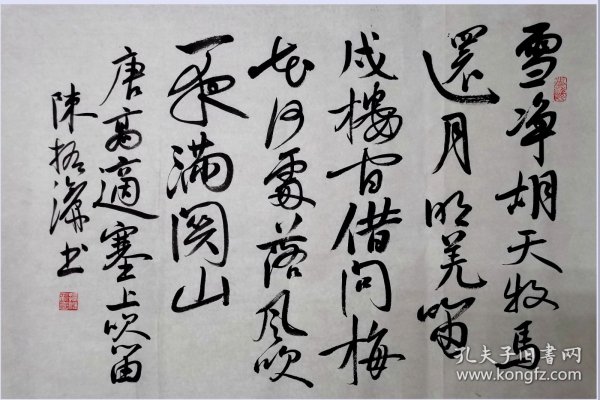 雪净胡天牧馬
還月明羌笛
戍樓间借问梅
花何處落风吹
一夜满関山
唐高適塞上吹笛
陳书
孔夫子旧书网
www.kongfz.com